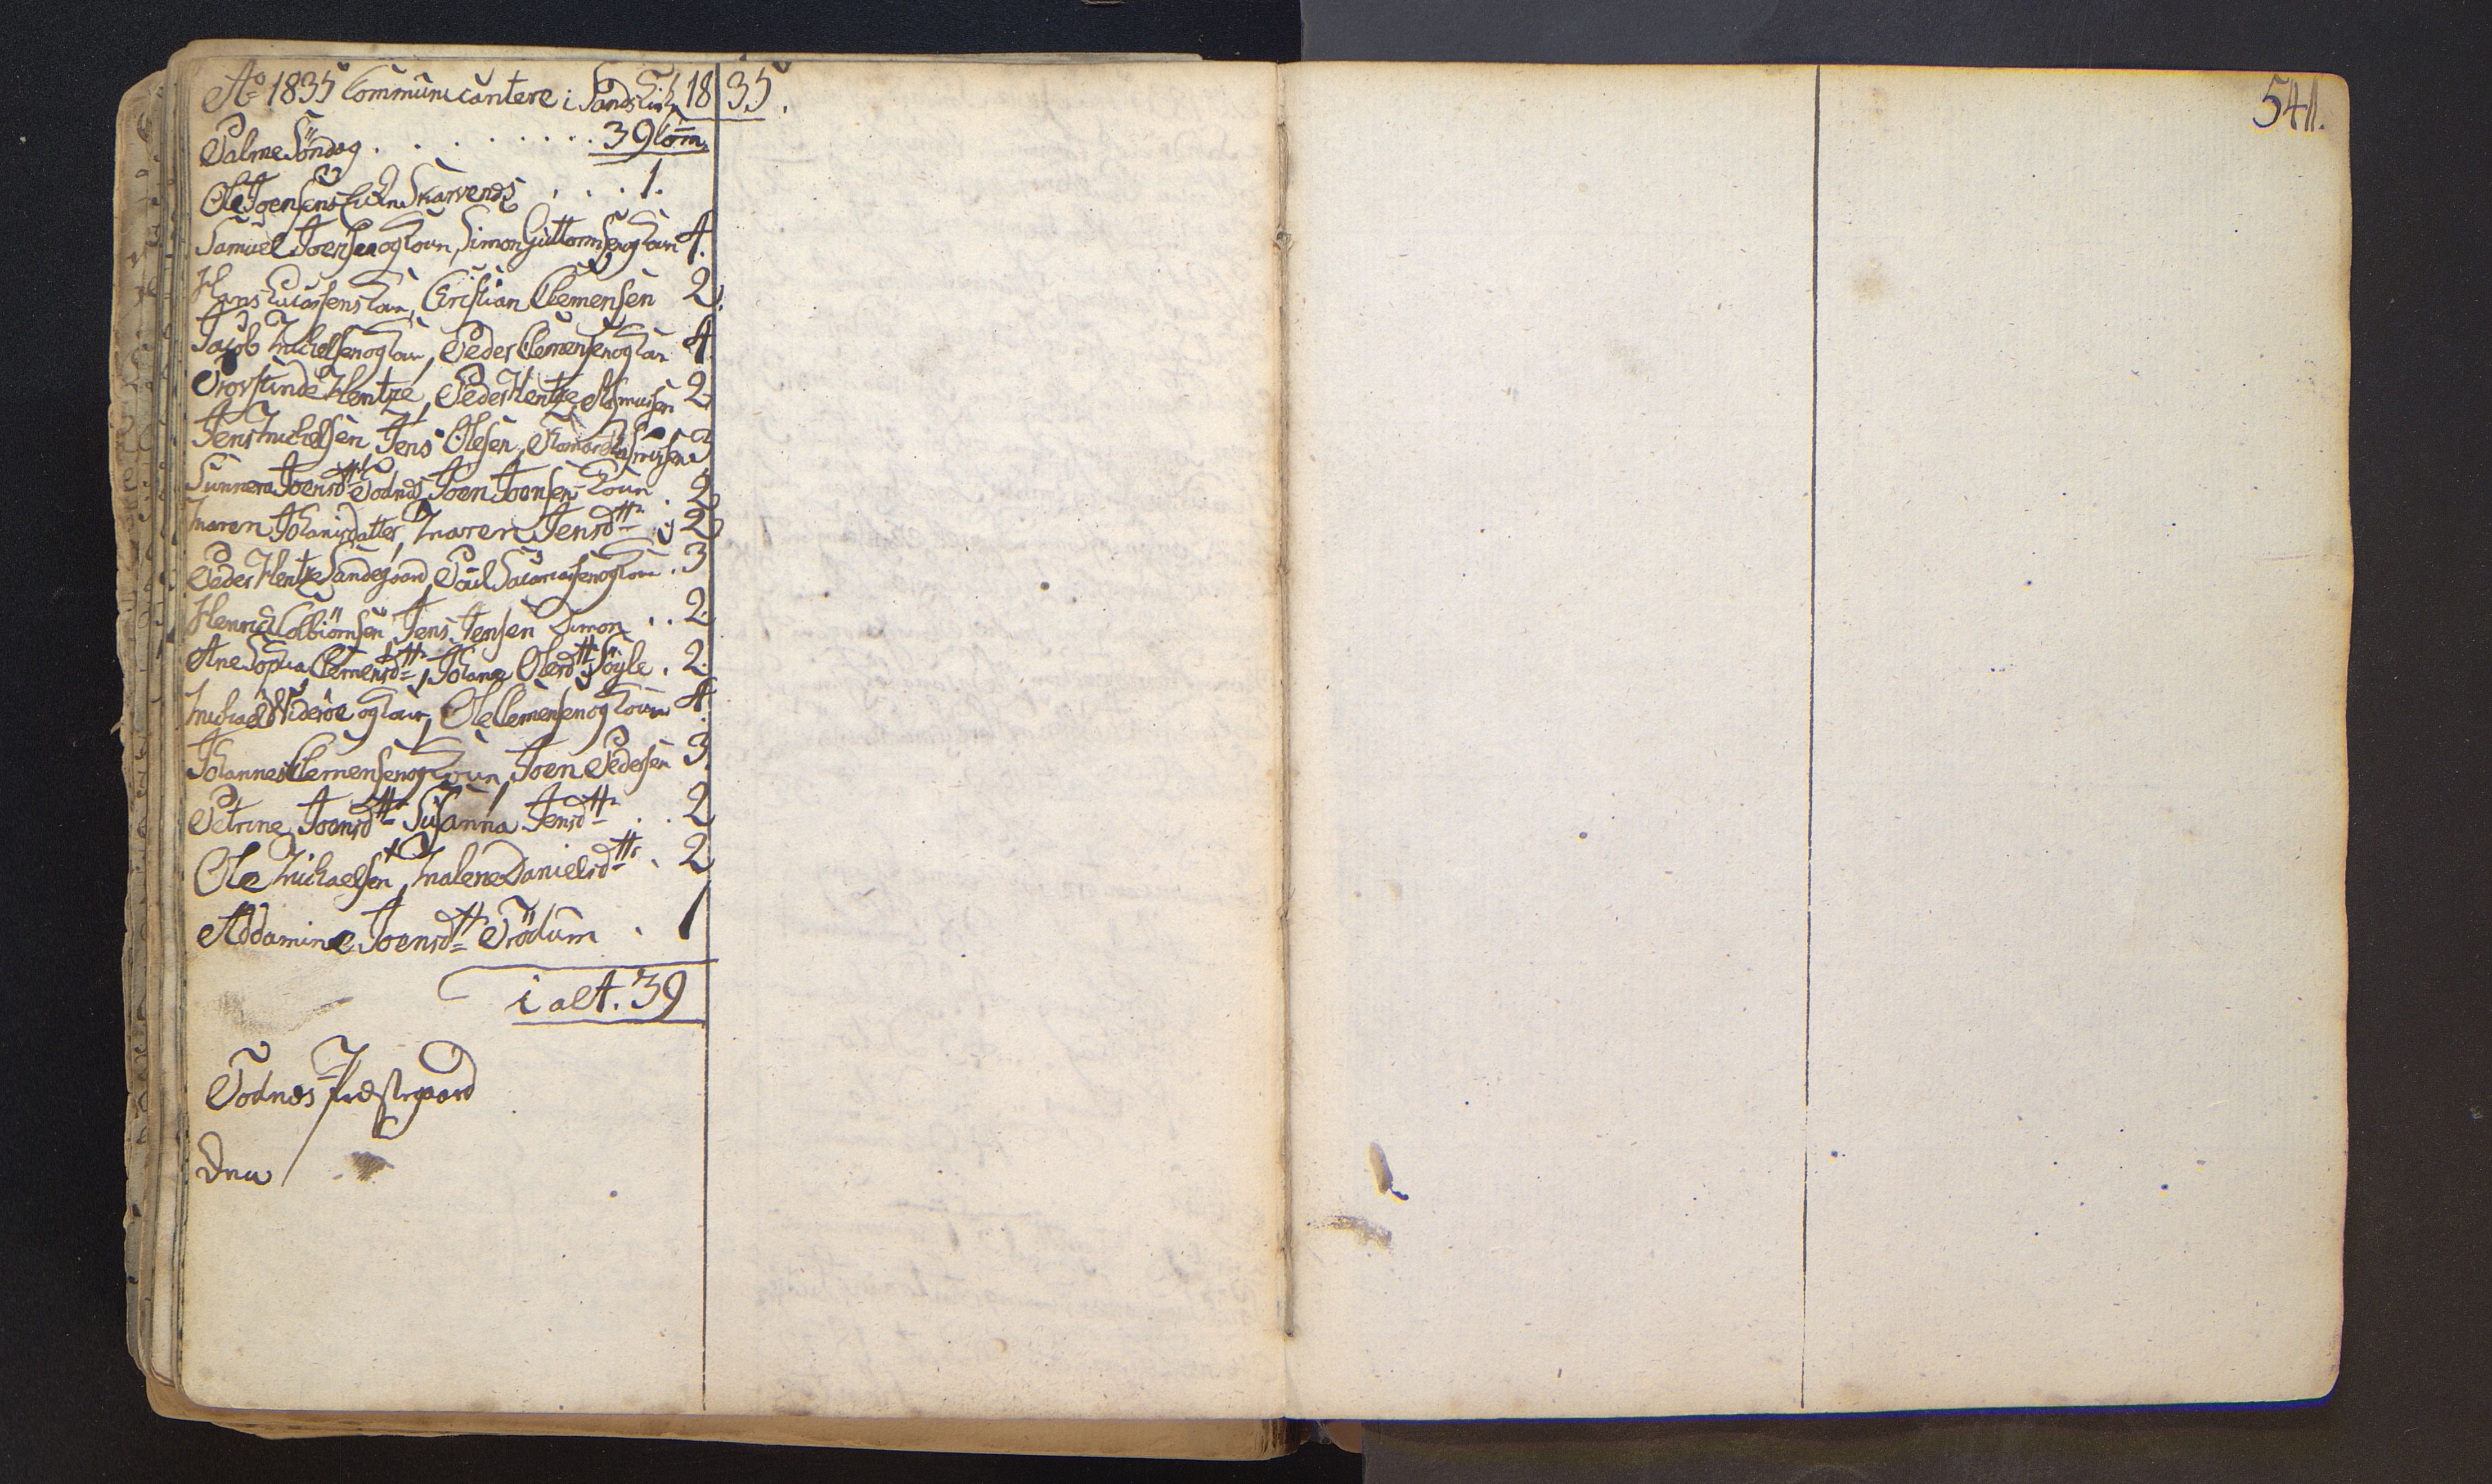 Ao 1835 Communicantere i Sands Kirk 1835.
Palme Söndag . . . . . . . 39 Com.
Ole Joensens Enke Skarvenes . . . 1.
Samuel Joensen og Koun, Simon Guttormsen og Koun 4.
Hans Lucassens Koun, Cristian Clemensen 2.
Jacob Michelsen og Koun, Peder Clemensen og Koun 4.
Provstinde Hentze, Peder Hentze Rasmusen 2.
Jens Michelsen, Jens Olesen, Thomas Rasmusen 3
Sunneva Joensdttr Todnes, Joen Joensens Koun . 2
Maren Johanisdatter, Maren Jensdttr 2
Peder Hentze Sandegaard, Poul Sacariasen og Koun . 3
Henrick Colbiörnsen, Jens Jensen Dimon . . 2.
Ane Sophia Clemensdttr, Johane Olesdttr Söyle . 2.
Michael Videröe og Koun, Ole Clemensen og Koun 4.
Johannes Clemensen og Koun, Joen Pedersen 3.
Petrine Joensdttr Susanna Jensdttr . . 2
Ole Michaelsen, Malene Danielsdttr . 2
Addamine Joensdttr Trödum . 1
i alt. 39
Todnes Præstegaard
Den
541.